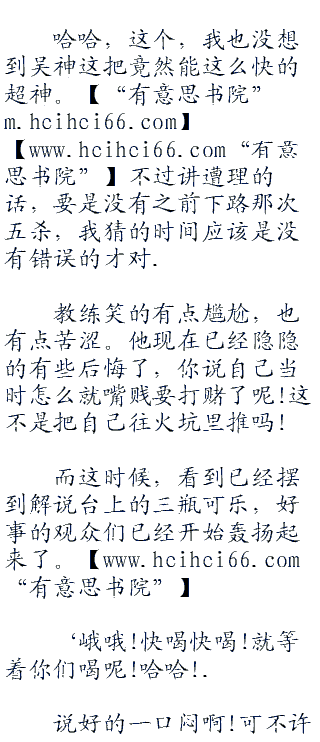 哈哈，这个，我也没想
到吴神这把竟然能这么快的
超神。【“有意思书院”
m.hcihci66.com】
【www.hcihci66.com“有意
思书院”】不过讲遭理的
话，要是没有之前下路那次
五杀，我猜的时间应该是没
有错误的才对.
教练笑的有点尴尬，也
有点苦涩。他现在已经隐隐
的有些后悔了，你说自己当
时怎么就嘴贱要打赌了呢!这
不是把自己往火坑里推吗!
而这时候，看到已经摆
到解说台上的三瓶可乐，好
事的观众们已经开始轰扬起
来了。【www.hcihci66.com
“有意思书院”】
‘峨哦!快喝快喝!就等
着你们喝呢!哈哈!.
说好的一口闷啊!可不许